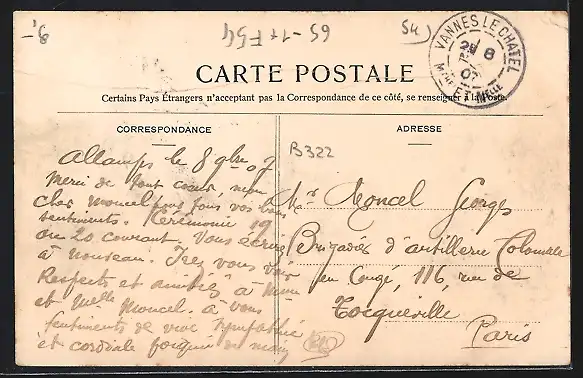 65-1+F54
54)
VANNES LE CHATEL
8
07
MTHE ET MELLE
CARTE POSTALE
Certains Pays Étrangers n'acceptant pas la Correspondance de ce côté, se renseigner à la Poste.
CORRESPONDANCE
ADRESSE
B322
Allamps le 8 9bre 07
Merci de tout cœur, mon
cher Moncel pour tous vos bons
sentiments. Cérémonie 19
ou 20 courant. Vous écrirai
à nouveau. Irez vous voir
Respects et amitiés à Mme
et Melle Moncel. à vous
sentiments de vive sympathie
et cordiale poignée de main
Mr Moncel Georges
Brigadier d'artillerie Coloniale
en Congé, 116, rue de
Tocqueville
Paris